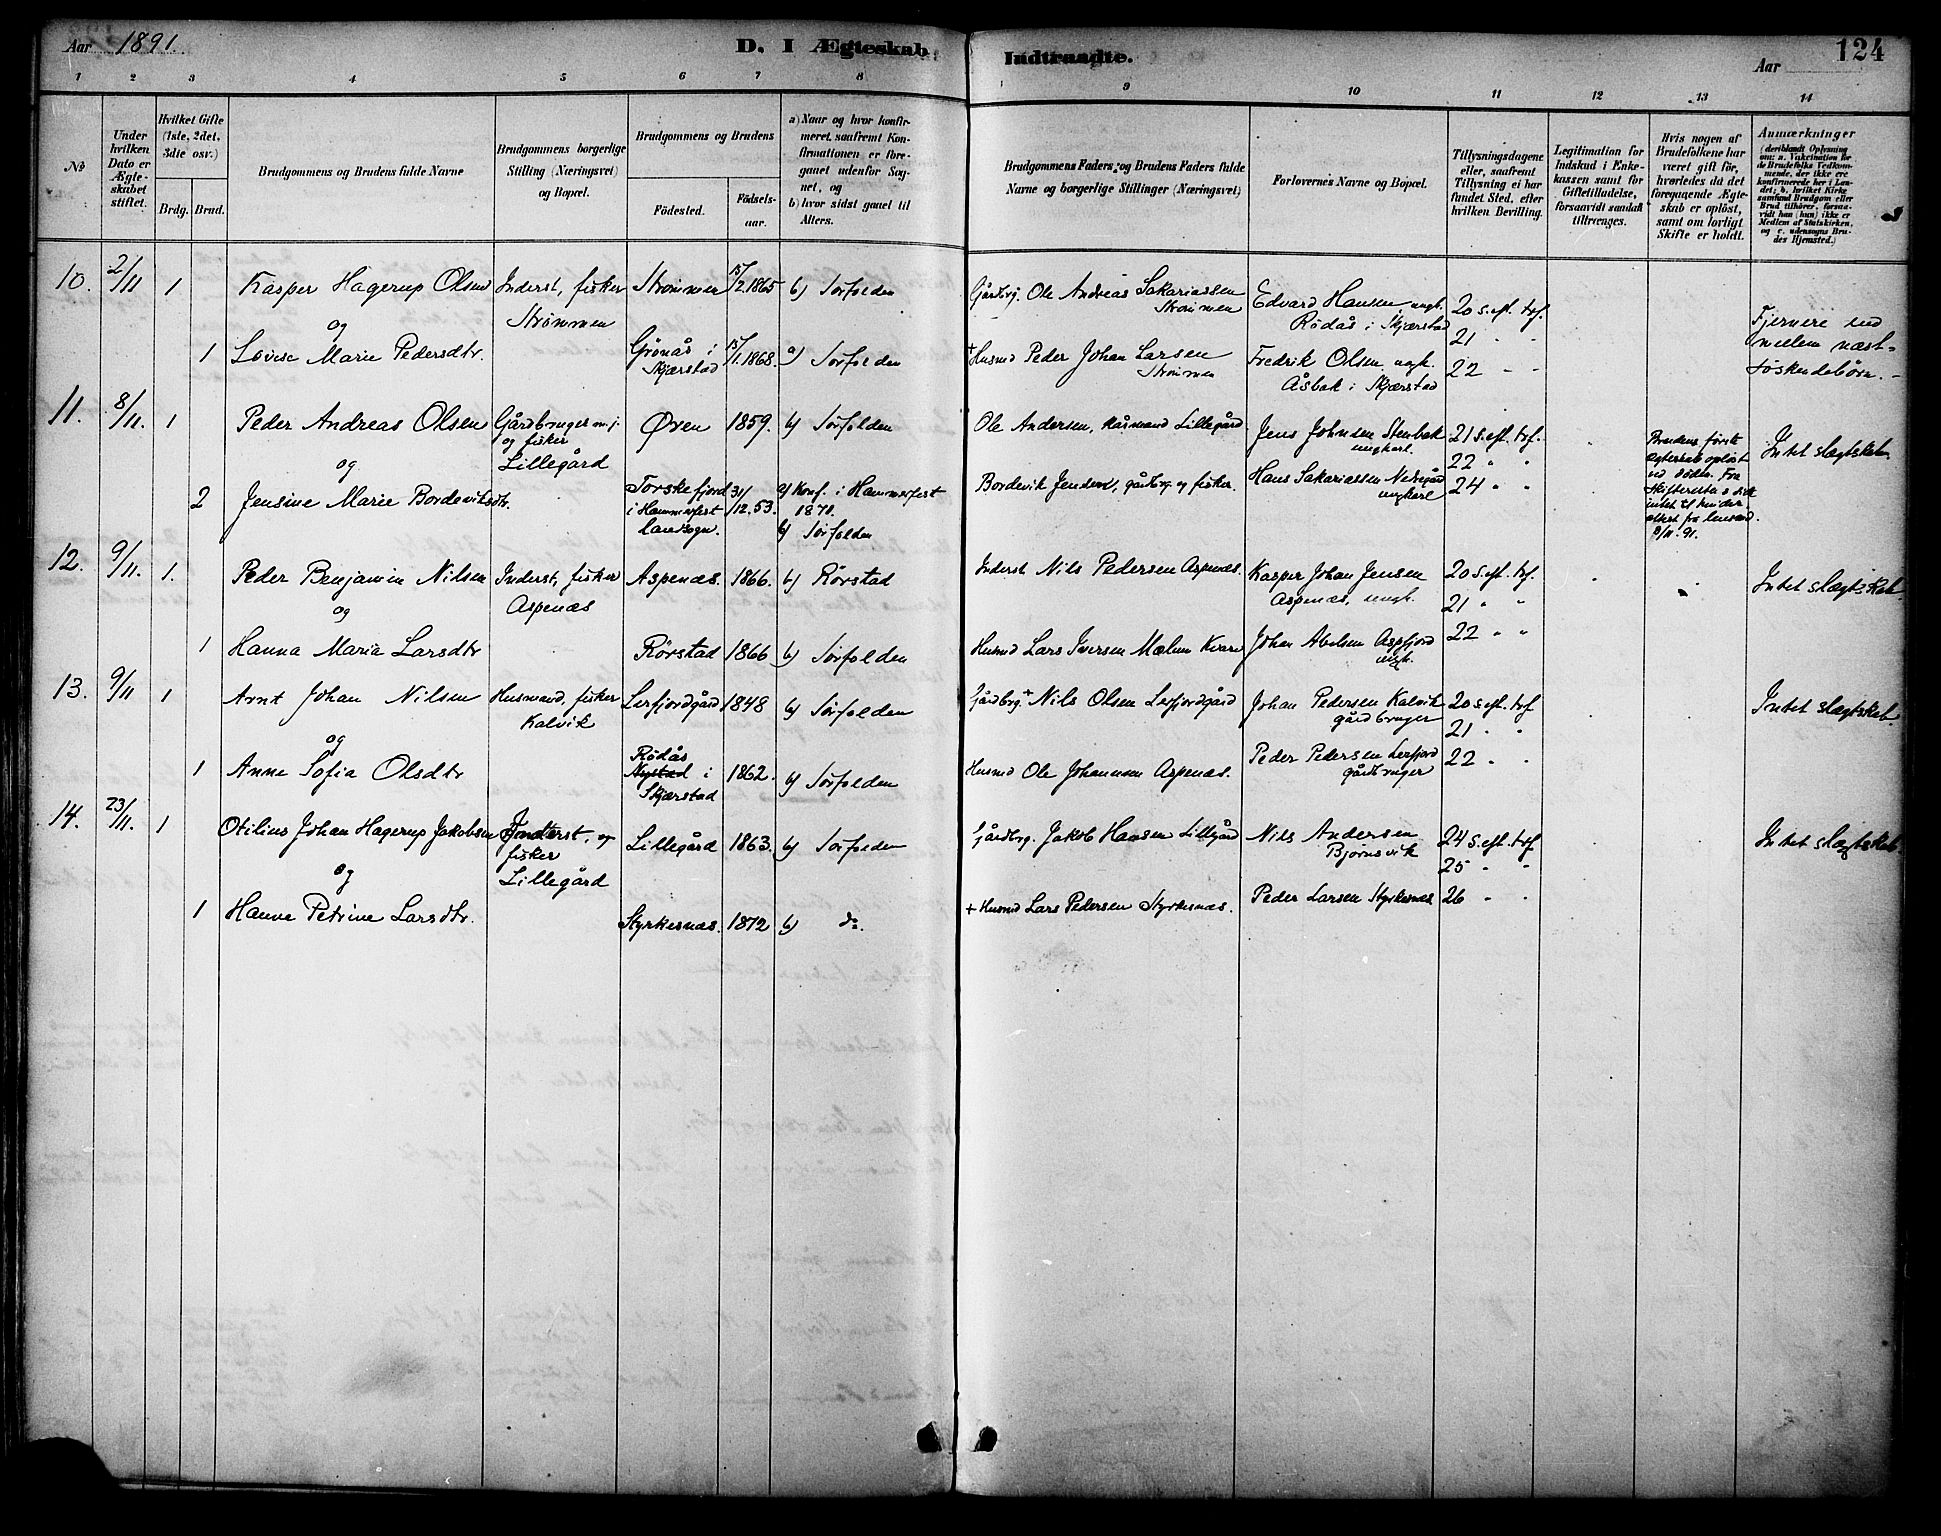 Aar 1891.
D. I Ægteskab Indtraadte.
Aar
124
1 2 3 4 5 6 7 8 9 10 11 12 13 14
№
Under hvilken Dato er Ægteskabet stiftet.
Hvilket Gifte (1ste, 2det, 3die osv.)
Brdg. Brud.
Brudgommens og Brudens fulde Navne
Brudgommens borgerlige Stilling (Næringsvei) og Bopæl.
Brudgommens og Brudens
Födested.
Födselsaar.
a) Naar og hvor konfirmeret, saafremt Konfirmationen er foregaaet udenfor Sognet, og
b) hvor sidst gaaet til Alters.
Brudgommens Faders, og Brudens Faders fulde Navne og borgerlige Stillinger (Næringsvei)
Forlovernes Navne og Bopæl.
Tillysningsdagene eller, saafremt Tillysning ei har fundet Sted, efter hvilken Bevilling.
Legitimation for Indskud i Enkekassen samt for Giftetilladelse, forsaavidt saadan tiltrænges.
Hvis nogen af Brudefolkene har været gift för, hvorledes da det foregaaende Ægteskab er oplöst, samt om lovligt Skifte er holdt.
Anmærkninger (deriblandt Oplysning om: a. Vakcination for de Brudefolks Vedkommende, der ikke ere konfirmerede her i Landet; b. hvilket Kirkesamfund Brudgom eller Brud tilhörer, forsaavidt han (hun) ikke er Medlem af Statskirken, og c. udensogns Brudes Hjemsted.)
10. 2/11 1 Kasper Hagerup Olsen Inderst, fisker Strømmen Strømmen 15/2.1865 b) Sørfolden Gårdbrg. Ole Andreas Sakariassen Strømmen Edvard Hansen, ungk. Rödås i Skjærstad 20 s. eft. tref.
og 21 " "
1 Lovise Marie Pedersdtr. Grönås i Skjærstad 15/1.1868. a) Sørfolden + Husmd Peder Johan Larsen Strømmen Fredrik Olsen ungk. Åsbak i Skjærstad 22 " " Fjernere end mellem næstsøskendebörn. –
11. 8/11. 1 Peder Andreas Olsen Gårdbruger m.j. og fisker Lillegård Øven 1859. b) Sørfolden Ole Andersen, kårmand Lillegård Jens Johnsen Stenbak ungkarl. 21 s. eft. tref. Intet slægtskab
og 22 " "
2 Jensine Marie Bordeviksdtr. Torskefjord i Hammerfest landsogn. 31/12.53. a) Konf. i Hammerfest 1871. b) Sørfolden Bordevik Jensen, gårdbrg. og fisker. Hans Sakariassen Nedregård ungkarl 24 " " Brudens første ægteskab opløst ved døden. Fra Skifteretten s sidd intet til hinder attest fra lensmd. 8/11. 91.
12. 9/11. 1. Peder Benjamin Nilsen Inderst, fisker Aspenæs Aspenæs. 1866. b) Rørstad Inderst Nils Pedersen Aspenæs. Kasper Johan Jensen Aspenæs, ungk. 20 s. eft. tref. Intet slægtskab.
og 21 " "
1 Hanna Maria Larsdtr Rørstad 1866 b) Sørfolden Husmd Lars Iversen Mælen Kvarv Johan Abelsen Aspfjord ungk. 22 " "
13. 9/11 1 Arnt Johan Nilsen Husmand, fisker Kalvik Lerfjordgård 1848 b) Sørfolden Gårdbrg. + Nils Olsen Lerfjordgård Johan Pedersen Kalvik gårdbruger 20 s. eft. tref Intet slægtskab
og 21 " "
1 Anne Sofia Olsdtr Rödås Nystad i Skjærstad 1862. b) Sørfolden Husmd Ole Johannsen Aspenæs. Peder Pedersen Lerfjord gårdbruger 22 " "
14. 23/11. 1 Otilius Johan Hagerup Jakobsen Inderst, og fisker Lillegård Lillegård 1863. b) Sørfolden Gårdbrg. Jakob Hansen Lillegård Nils Andersen Bjørnsvik 24 s. eft. tref Intet slægtskab
og 25 " "
1 Hanne Petrine Larsdtr. Styrkesnæs. 1872 b) do. + Husmd Lars Pedersen Styrkesnæs. Peder Larsen Styrkesnæs 26 " "